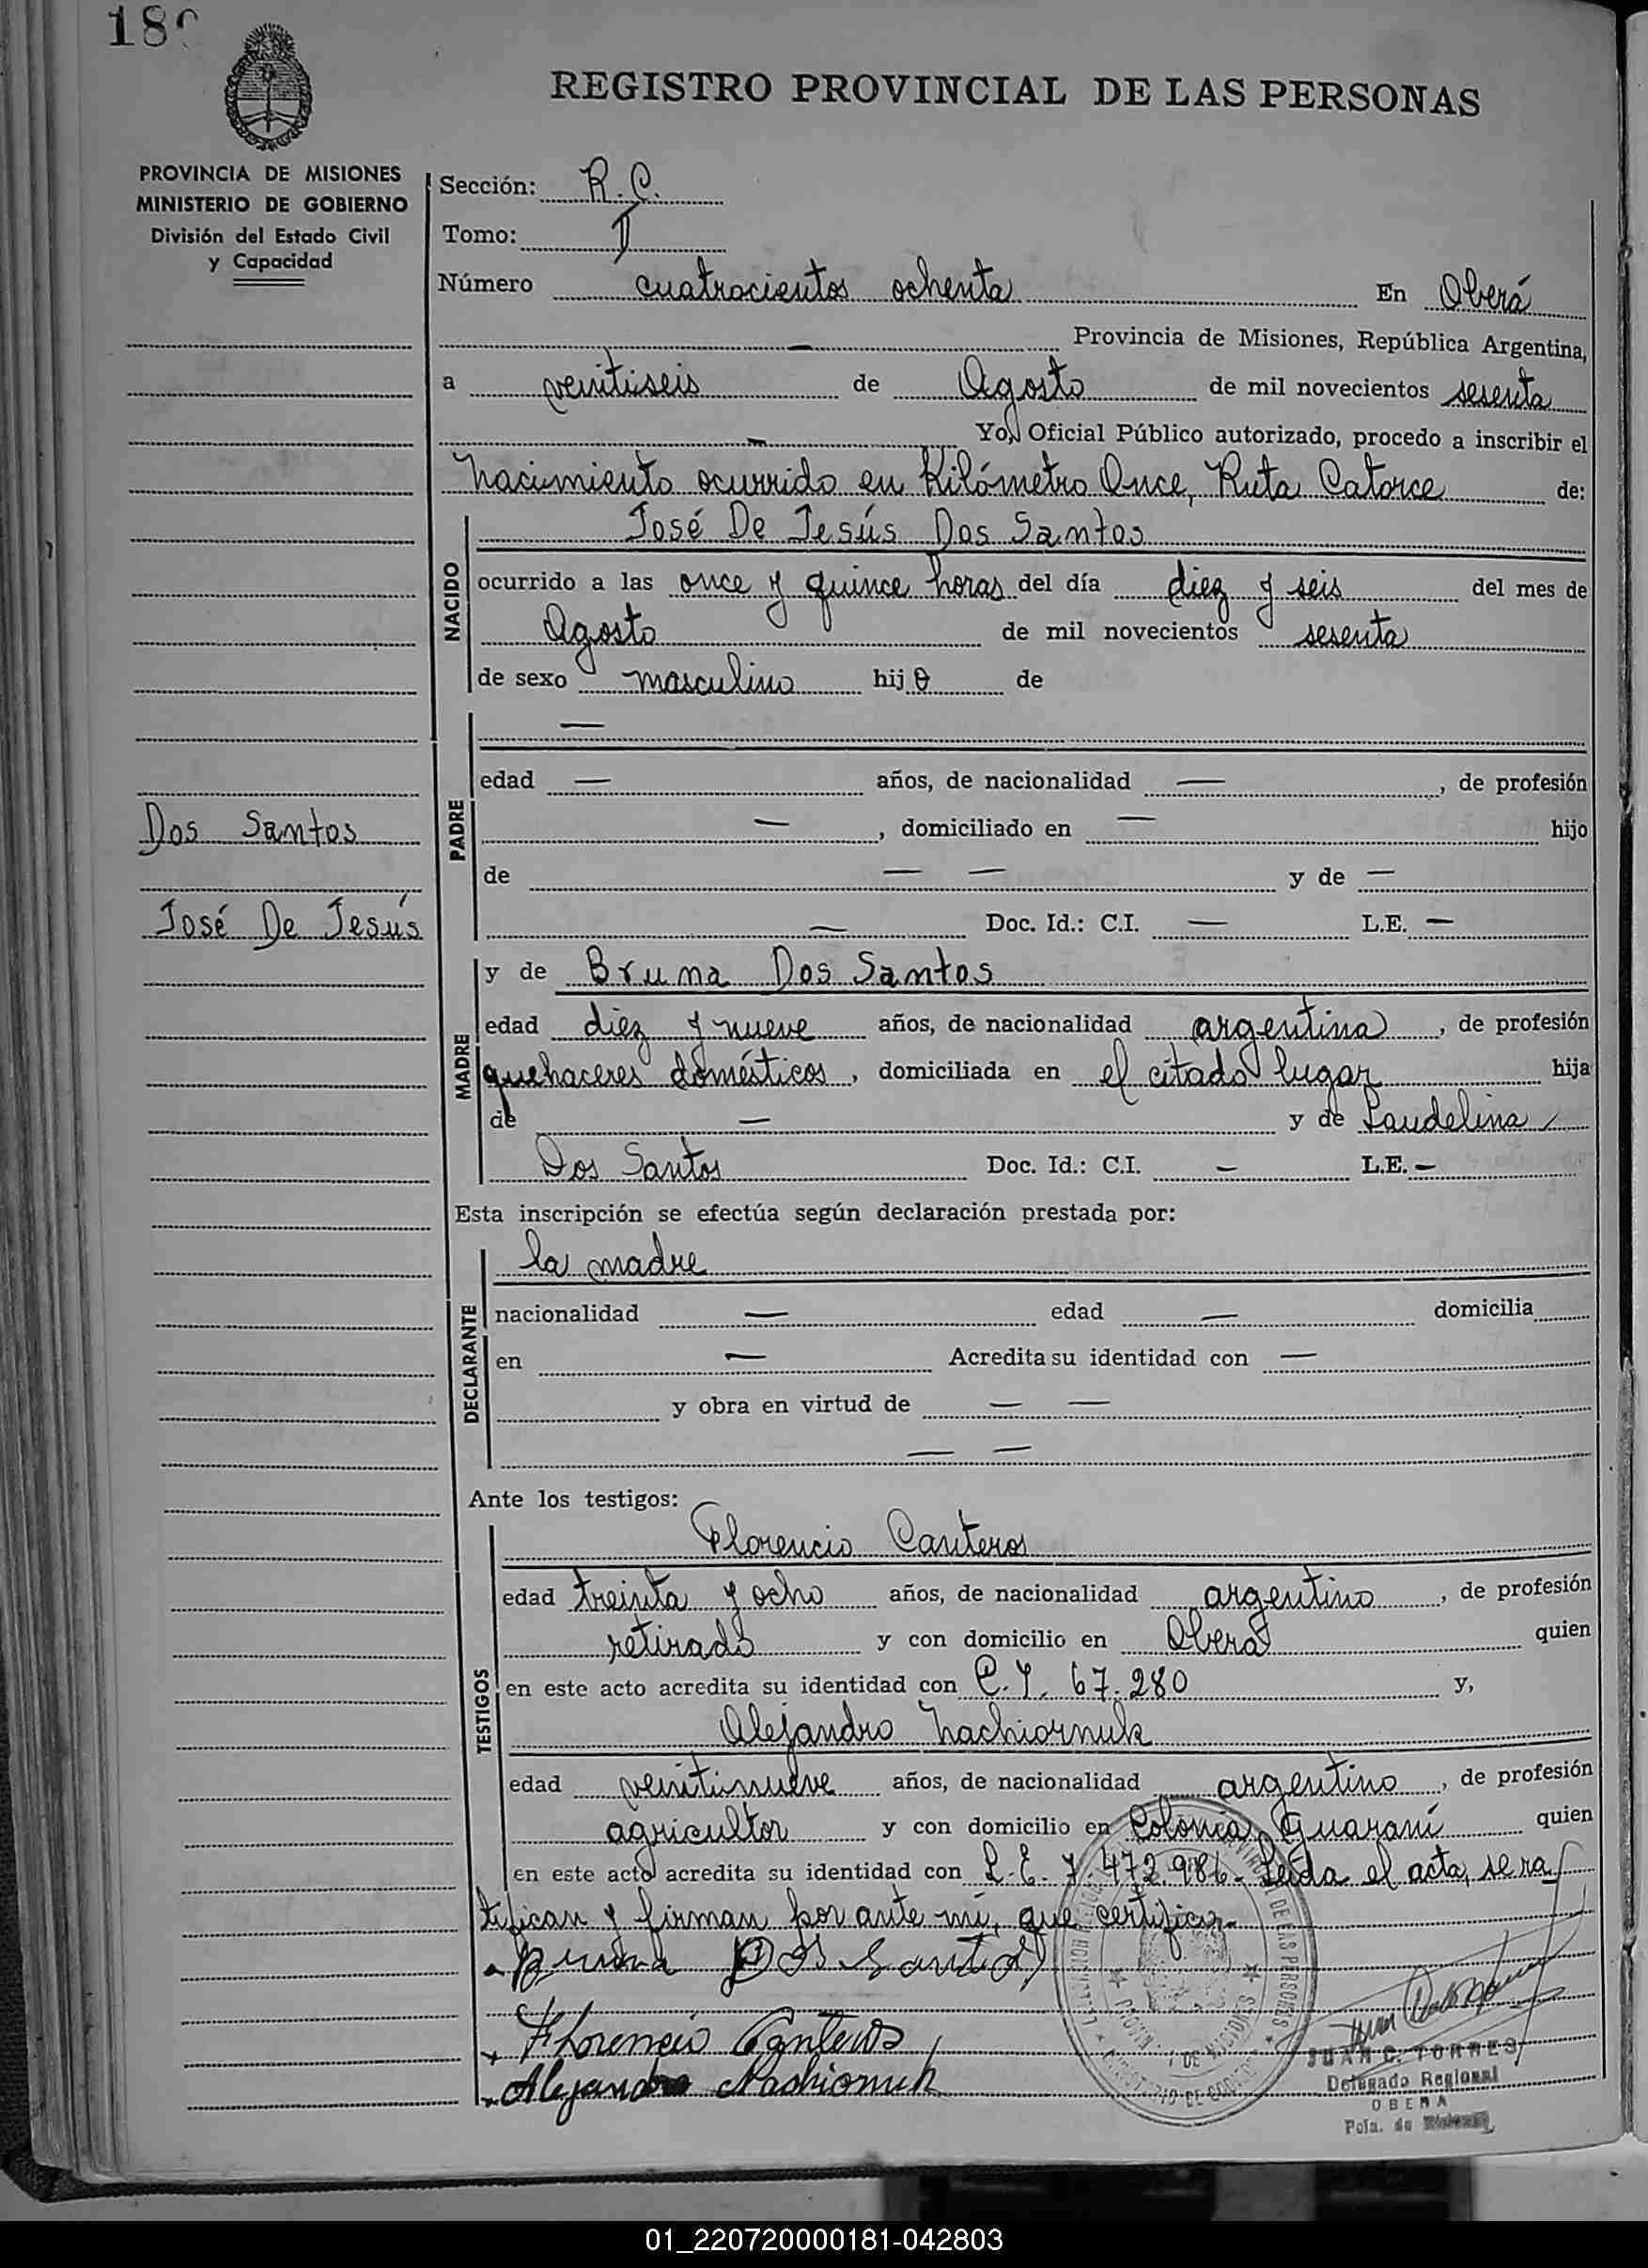 18
REGISTRO PROVINCIAL DE LAS PERSONAS
PROVINCIA DE MISIONES
MINISTERIO DE GOBIERNO
División del Estado Civil
y Capacidad
Sección: R. C.
Tomo: I
Número cuatrocientos ochenta En Oberá
— Provincia de Misiones, República Argentina,
a veintiseis de Agosto de mil novecientos sesenta
— Yo, Oficial Público autorizado, procedo a inscribir el
nacimiento ocurrido en Kilómetro Once, Ruta Catorce de:
NACIDO
José De Jesús Dos Santos
ocurrido a las once y quince horas del día diez y seis del mes de
Agosto de mil novecientos sesenta
de sexo masculino hijo de
PADRE
—
edad — años, de nacionalidad — , de profesión
— , domiciliado en — hijo
de — — y de —
— Doc. Id.: C.I. — L.E. —
Dos Santos
José De Jesús
MADRE
y de Bruna Dos Santos
edad diez y nueve años, de nacionalidad argentina , de profesión
quehaceres domésticos , domiciliada en el citado lugar hija
de — y de Laudelina
Dos Santos Doc. Id.: C.I. — L.E. —
Esta inscripción se efectúa según declaración prestada por:
DECLARANTE
la madre
nacionalidad — edad — domicilia
en — Acredita su identidad con —
y obra en virtud de — —
— —
Ante los testigos:
TESTIGOS
Florencio Canteros
edad treinta y ocho años, de nacionalidad argentino , de profesión
retirado y con domicilio en Oberá quien
en este acto acredita su identidad con C. I. 67.280 y,
Alejandro Nachiornuk
edad veintinueve años, de nacionalidad argentino , de profesión
agricultor y con domicilio en Colonia Guaraní quien
en este acto acredita su identidad con L. E. 7.472.986.- Leída el acta, se ra
tifican y firman por ante mí, que certifico.-
Bruna Dos Santos
Florencio Canteros
Alejandro Nachiornuk
JUAN C. TORRES
Delegado Regional
OBERA
Pcia. de Misiones
01_220720000181-042803